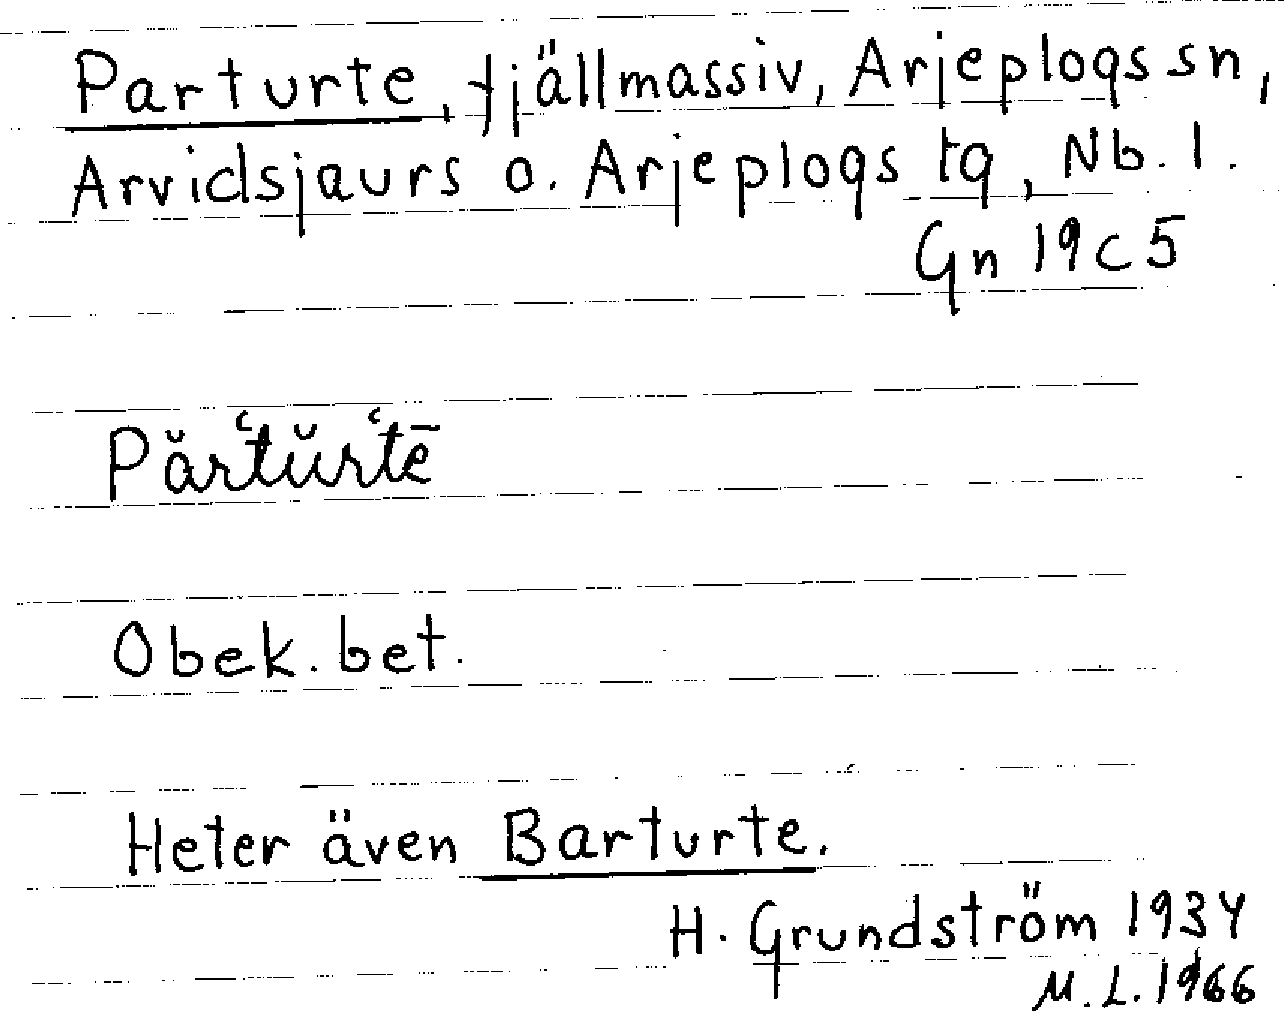 Parturte, fjällmassiv, Arjeplogs sn,
Arvidsjaurs o. Arjeplogs tg, Nb. l.
Gn 19 c 5
Părʿtŭrʿtē
Obek. bet.
Heter även Barturte.
H. Grundström 1934
M. L. 1966